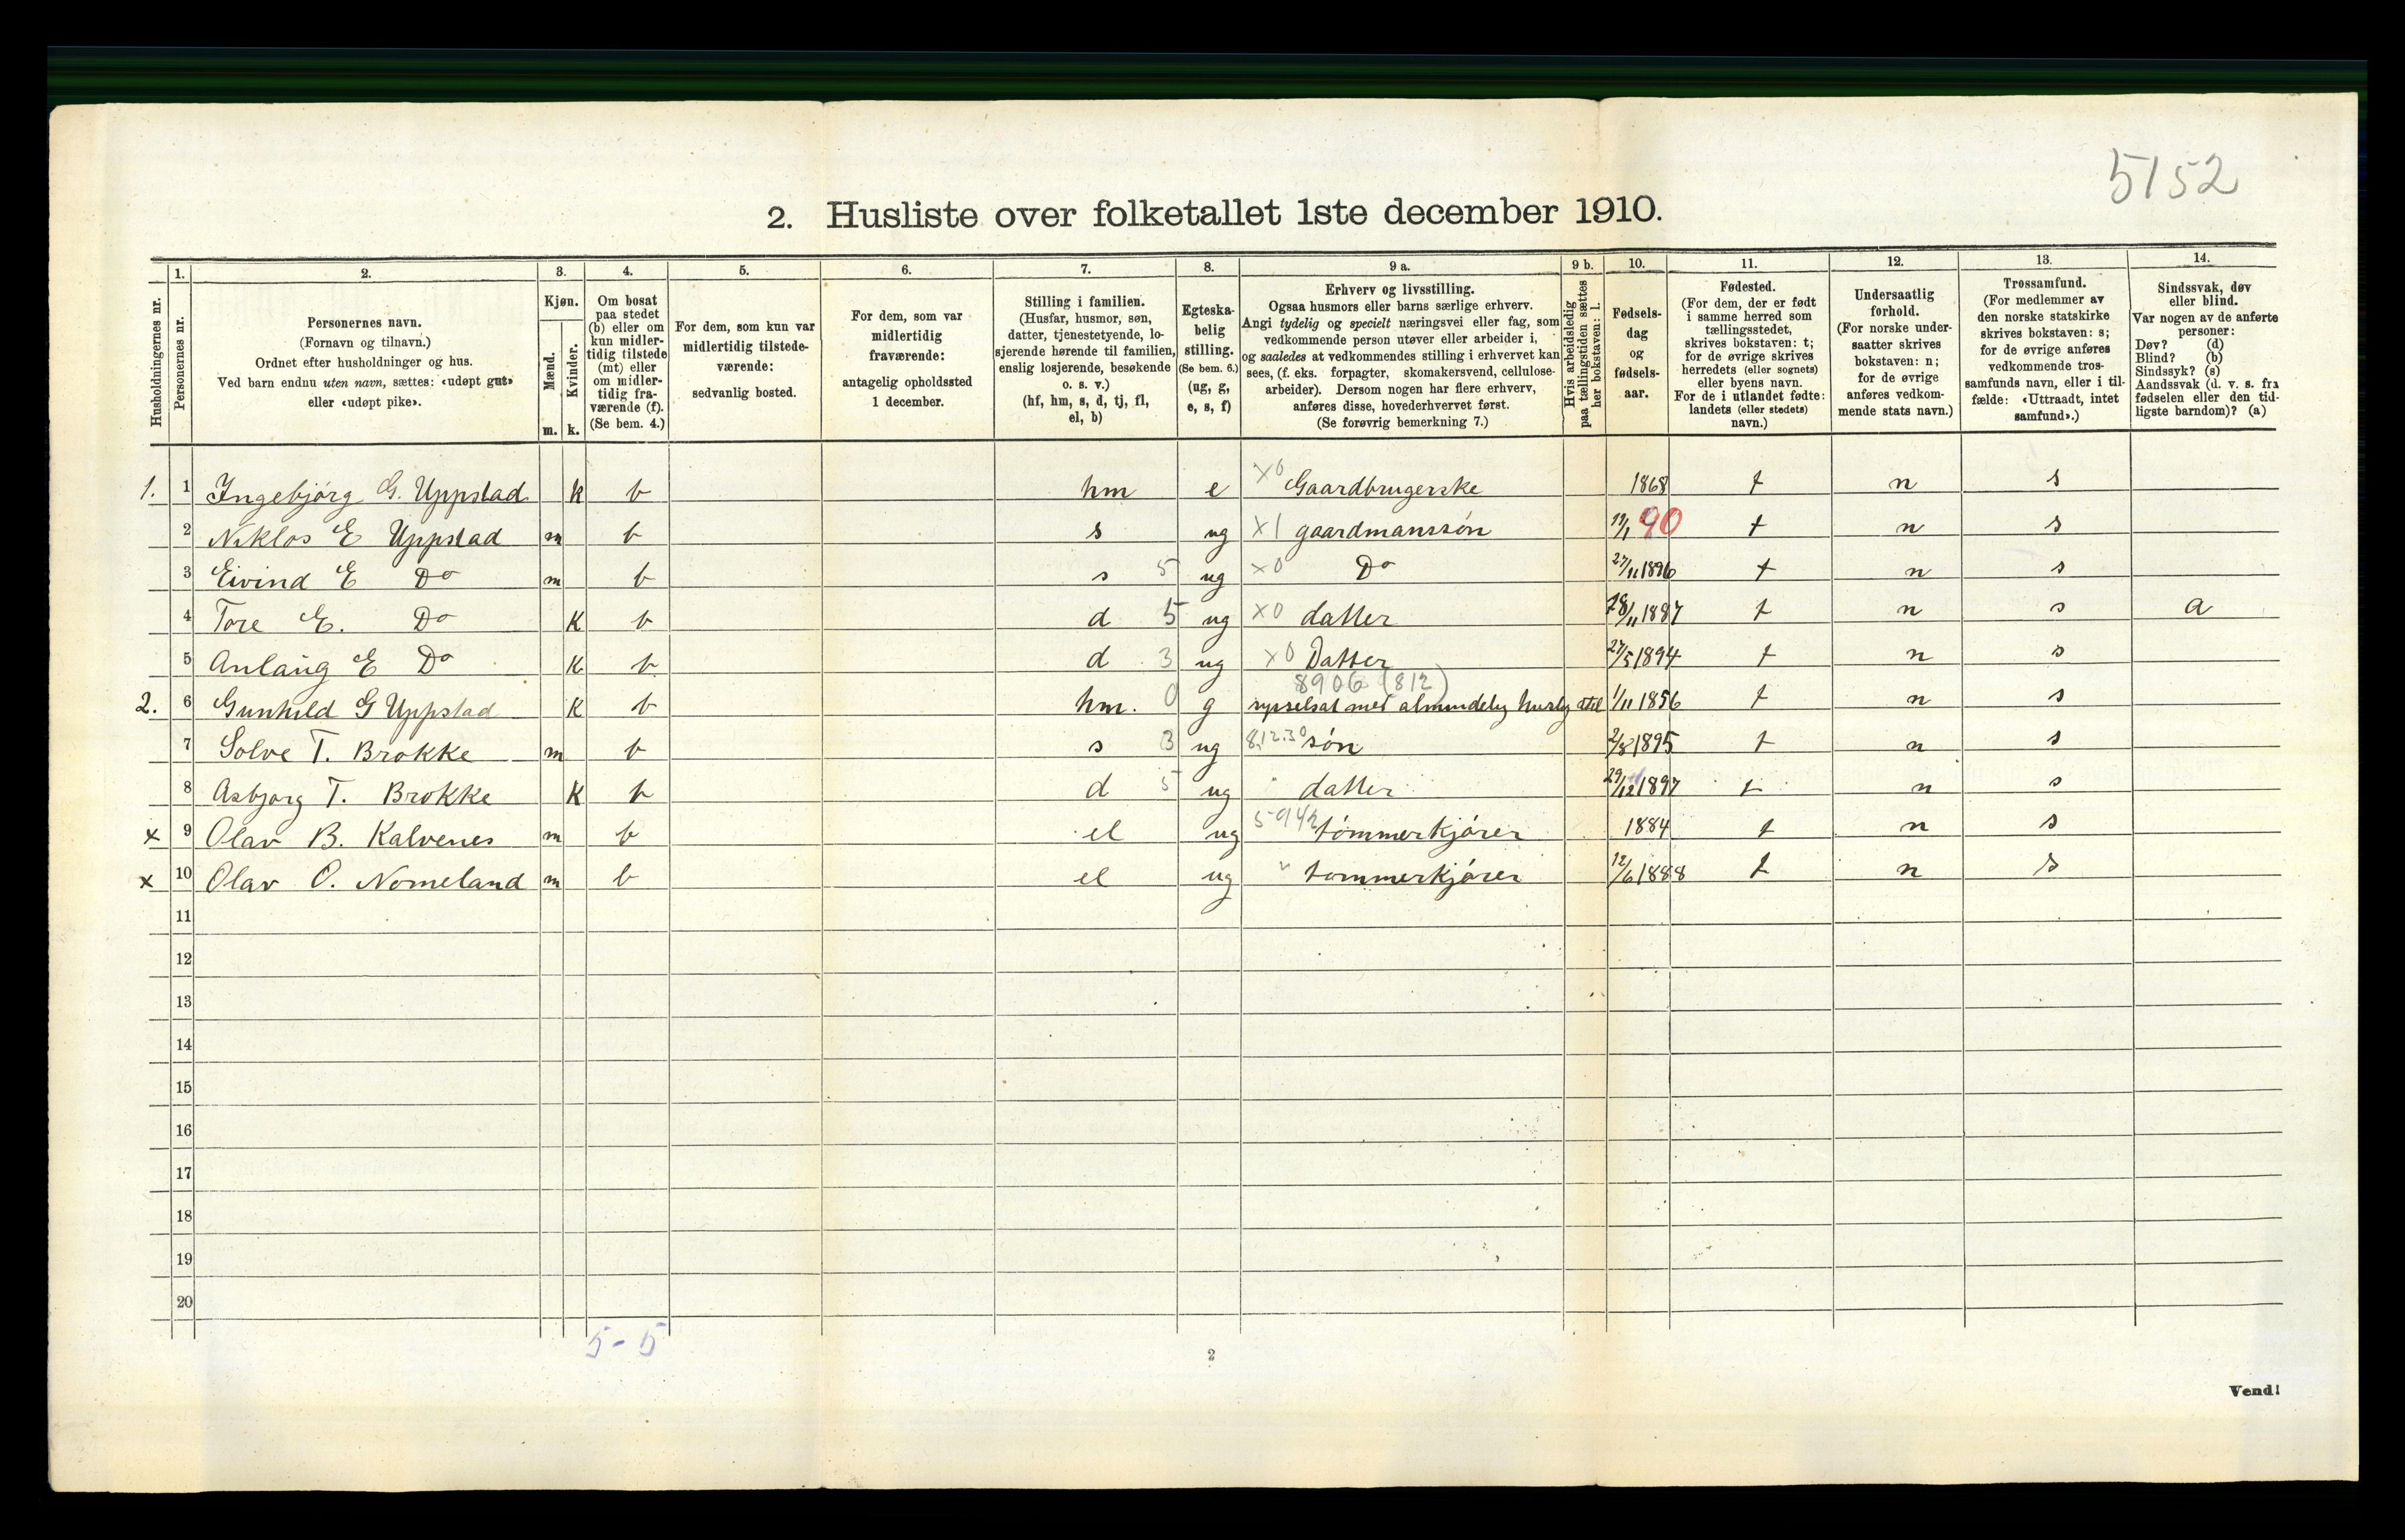 5152
2. Husliste over folketallet 1ste december 1910.
Husholdningernes nr.
1.
Personernes nr.
2.
Personernes navn.
(Fornavn og tilnavn.)
Ordnet efter husholdninger og hus.
Ved barn endnu uten navn, sættes: «udøpt gut»
eller «udøpt pike».
3.
Kjøn.
Mænd.
m.
Kvinder.
k.
4.
Om bosat
paa stedet
(b) eller om
kun midler-
tidig tilstede
(mt) eller
om midler-
tidig fra-
værende (f).
(Se bem. 4.)
5.
For dem, som kun var
midlertidig tilstede-
værende:
sedvanlig bosted.
6.
For dem, som var
midlertidig
fraværende:
antagelig opholdssted
1 december.
7.
Stilling i familien.
(Husfar, husmor, søn,
datter, tjenestetyende, lo-
sjerende hørende til familien,
enslig losjerende, besøkende
o. s. v.)
(hf, hm, s, d, tj, fl,
el, b)
8.
Egteska-
belig
stilling.
(Se bem. 6.)
(ug, g,
e, s, f)
9 a.
Erhverv og livsstilling.
Ogsaa husmors eller barns særlige erhverv.
Angi tydelig og specielt næringsvei eller fag, som
vedkommende person utøver eller arbeider i,
og saaledes at vedkommendes stilling i erhvervet kan
sees, (f. eks. forpagter, skomakersvend, cellulose-
arbeider). Dersom nogen har flere erhverv,
anføres disse, hovederhvervet først.
(Se forøvrig bemerkning 7.)
9 b.
Hvis arbeidsledig
paa tællingstiden sættes
her bokstaven: l.
10.
Fødsels-
dag
og
fødsels-
aar.
11.
Fødested.
(For dem, der er født
i samme herred som
tællingsstedet,
skrives bokstaven: t;
for de øvrige skrives
herredets (eller sognets)
eller byens navn.
For de i utlandet fødte:
landets (eller stedets)
navn.)
12.
Undersaatlig
forhold.
(For norske under-
saatter skrives
bokstaven: n;
for de øvrige
anføres vedkom-
mende stats navn.)
13.
Trossamfund.
(For medlemmer av
den norske statskirke
skrives bokstaven: s;
for de øvrige anføres
vedkommende tros-
samfunds navn, eller i til-
fælde: «Uttraadt, intet
samfund».)
14.
Sindssvak, døv
eller blind.
Var nogen av de anførte
personer:
Døv? (d)
Blind? (b)
Sindssyk? (s)
Aandssvak (d. v. s. fra
fødselen eller den tid-
ligste barndom)? (a)
1. 1 Ingebjórg G. Uppstad k b hm e x0 Gaardbrugerske 1868 t n s
2 Niklos E Uppstad m b s ug x1 gaardmanssón 19/1 90 t n s
3 Eivind E Do m b s 5 ug x0 Do 27/11 1896 t n s
4 Tore E. Do K b d 5 ug x0 datter 28/11 1887 t n s a
5 Anlaug E Do K b d 3 ug x0 Datter 27/5 1894 t n s
8906 (812)
2. 6 Gunhild G Uppstad K b hm. 0 g sysselsat med almindelig husly stel 1/11 1856 t n s
7 Solve T. Brokke m b s 3 ug 8.12.30 són 2/8 1895 t n s
8 Asbjorg T. Brokke K b d 5 ug " datter 29/12 1897 t n s
x 9 Olav B. Kalvenes m b el ug tómmerkjórer 1884 t n s
x 10 Olav O. Nomeland m b el ug " tommerkjórer 12/6 1888 t n s
11
12
13
14
15
16
17
18
19
20
5-5
2
Vend!